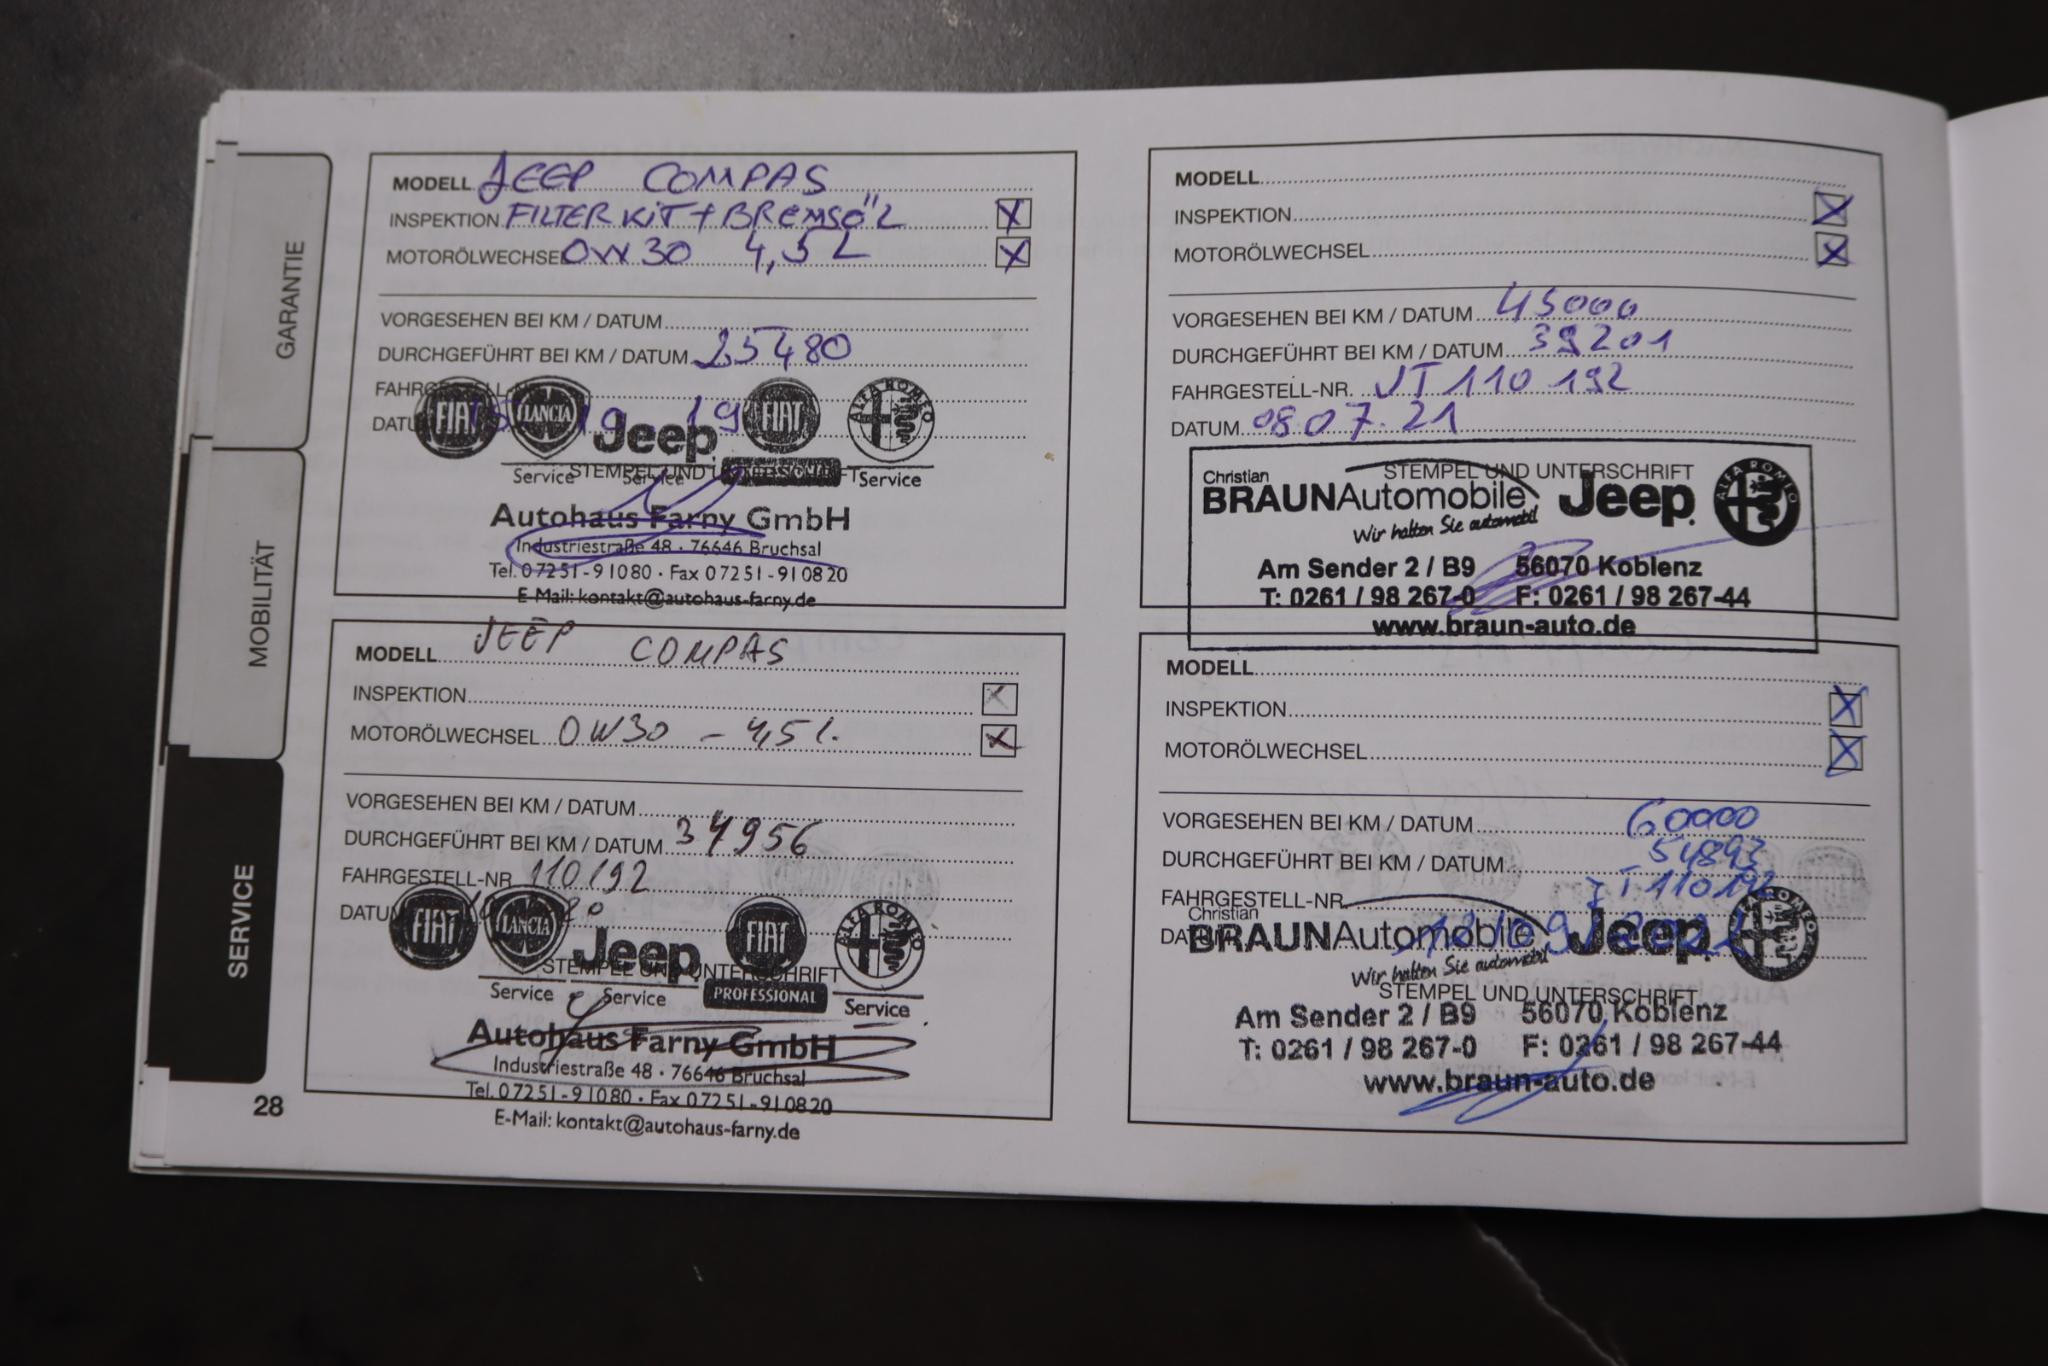 GARANTIE
MOBILITÄT
SERVICE
28
MODELL JEEP COMPAS
INSPEKTION FILTER KIT + BREMSÖL X
MOTORÖLWECHSEL 0W30 4,5L X
VORGESEHEN BEI KM / DATUM
DURCHGEFÜHRT BEI KM / DATUM 25480
FAHRGESTELL-NR.
DATUM 19
FIAT LANCIA Jeep FIAT ALFA ROMEO
STEMPEL UND UNTERSCHRIFT
Service Service PROFESSIONAL Service
Autohaus Farny GmbH
Industriestraße 48 · 76646 Bruchsal
Tel. 07251-91080 · Fax 07251-910820
E-Mail: kontakt@autohaus-farny.de
MODELL JEEP COMPAS
INSPEKTION X
MOTORÖLWECHSEL 0W30 - 4,5 l.
VORGESEHEN BEI KM / DATUM
DURCHGEFÜHRT BEI KM / DATUM 34956
FAHRGESTELL-NR 110192
DATUM
FIAT LANCIA Jeep FIAT ALFA ROMEO
STEMPEL UND UNTERSCHRIFT
Service Service PROFESSIONAL Service
Autohaus Farny GmbH
Industriestraße 48 · 76646 Bruchsal
Tel. 07251-91080 · Fax 07251-910820
E-Mail: kontakt@autohaus-farny.de
MODELL
INSPEKTION X
MOTORÖLWECHSEL X
VORGESEHEN BEI KM / DATUM 45000
DURCHGEFÜHRT BEI KM / DATUM 39201
FAHRGESTELL-NR. JT110192
DATUM 08.07.21
STEMPEL UND UNTERSCHRIFT
Christian
BRAUNAutomobile Jeep ALFA ROMEO
Wir halten Sie automobil
Am Sender 2 / B9 56070 Koblenz
T: 0261 / 98 267-0 F: 0261 / 98 267-44
www.braun-auto.de
MODELL
INSPEKTION X
MOTORÖLWECHSEL X
VORGESEHEN BEI KM / DATUM 60000
DURCHGEFÜHRT BEI KM / DATUM 54893
FAHRGESTELL-NR. JT110192
Christian
DATUM
BRAUNAutomobile Jeep ALFA ROMEO
Wir halten Sie automobil
STEMPEL UND UNTERSCHRIFT
Am Sender 2 / B9 56070 Koblenz
T: 0261 / 98 267-0 F: 0261 / 98 267-44
www.braun-auto.de